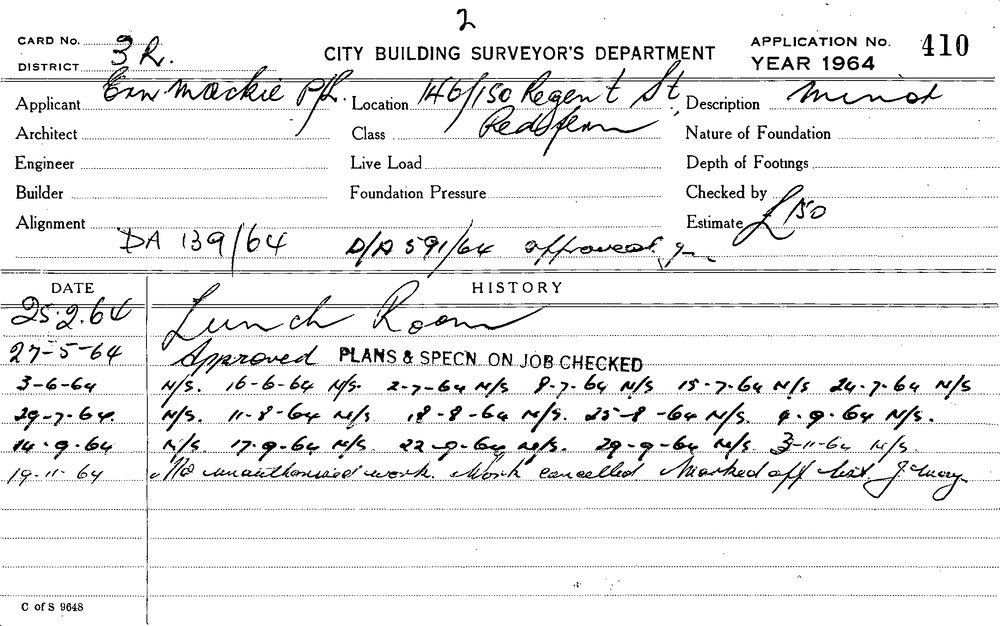 2
CARD No. 3R.
DISTRICT
CITY BUILDING SURVEYOR'S DEPARTMENT
APPLICATION No. 410
YEAR 1964
Applicant Ern Mackie P/L. Location 146/150 Regent St, Description Minor
Architect Class Redfern Nature of Foundation
Engineer Live Load Depth of Footings
Builder Foundation Pressure Checked by
Alignment Estimate £150
DA 139/64 D/A 591/64 approved
DATE HISTORY
25.2.64 Lunch Room
27-5-64 Approved PLANS & SPECN. ON JOB CHECKED
3-6-64 N/S. 16-6-64 N/S. 2-7-64 N/S 8-7-64 N/S 15-7-64 N/S 24-7-64 N/S
29-7-64. N/S. 11-8-64 N/S. 18-8-64 N/S. 25-8-64 N/S. 4-9-64 N/S.
14-9-64 N/S 17-9-64 N/S. 22-9-64 N/S. 29-9-64 N/S. 3-11-64 N/S.
19-11-64 No unauthorised work. Work cancelled Marked off list.
C of S 9648